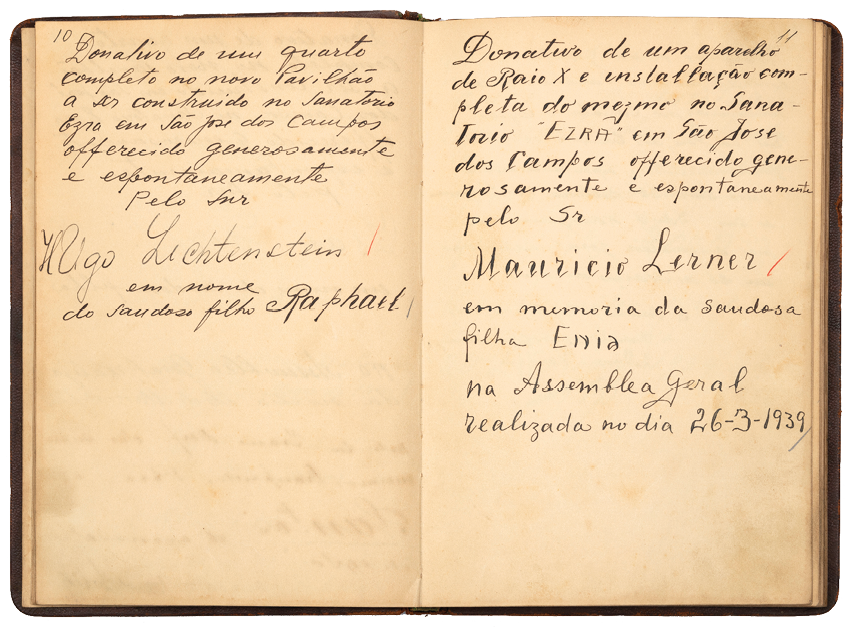 10
Donativo de um quarto
completo no novo Pavilhão
a ser construido no Sanatorio
Ezra em São Jose dos Campos
offerecido generosamente
e espontaneamente
Pelo Snr
Hugo Lichtenstein
em nome
do saudoso filho Raphael
11
Donativo de um aparelho
de Raio X e installação com-
pleta do mezmo no Sana-
torio "EZRA" em São Jose
dos Campos offerecido gene-
rosamente e espontaneamente
pelo Sr
Mauricio Lerner
em memoria da saudosa
filha Enia
na Assemblea Geral
realizada no dia 26-3-1939